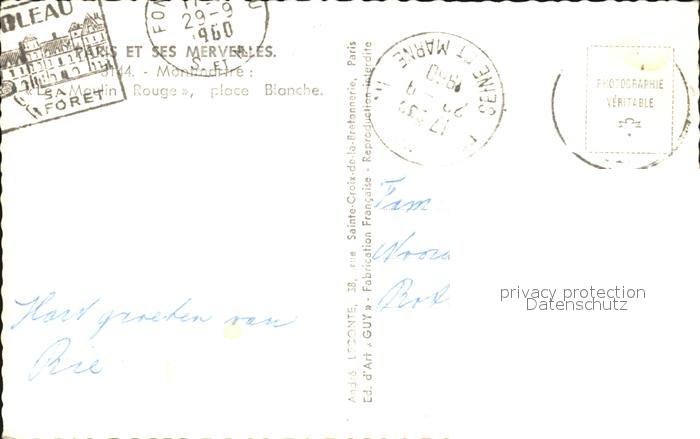 BLEAU
SA
FORET
FO
29-9
1960
S.-ET
PARIS ET SES MERVEILLES.
3144. - Montmartre :
« Le Moulin Rouge », place Blanche.
Hart. groeten van
Rie
André LECONTE, 38, rue Sainte-Croix-de-la-Bretonnerie, Paris
Ed. d'Art « GUY » - Fabrication Française - Reproduction interdite
SEINE ET MARNE
1960
PHOTOGRAPHIE
VÉRITABLE
Fam
Noord
Rott
privacy protection
Datenschutz